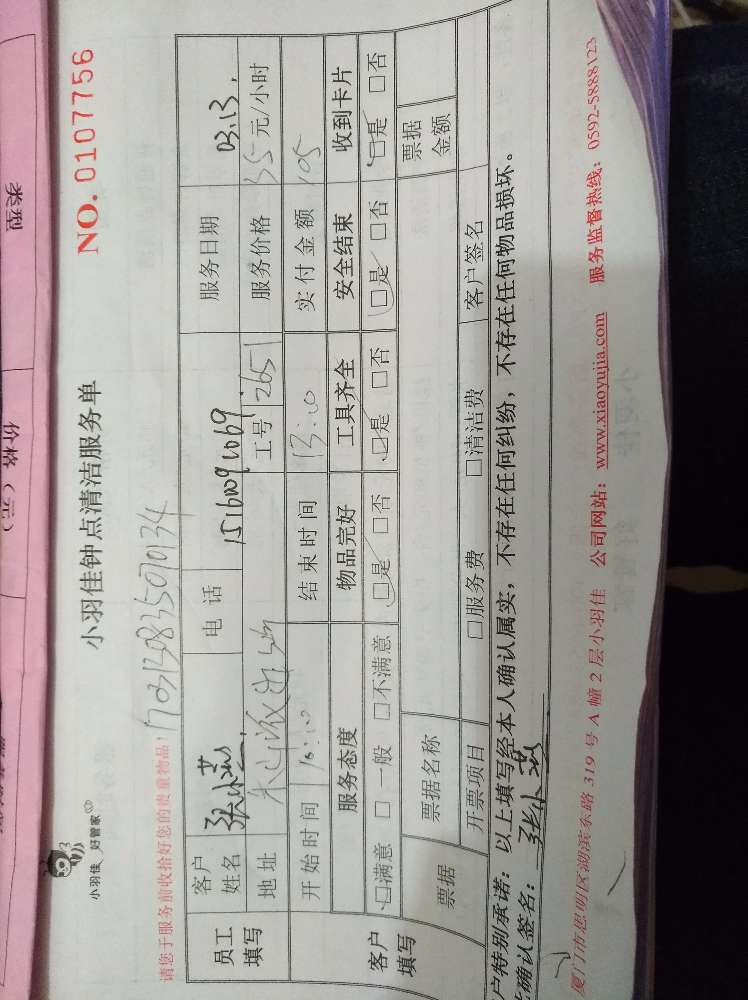 类型
价格（元）
小羽佳 好管家
小羽佳钟点清洁服务单
NO. 0107756
请您于服务前收拾好您的贵重物品！
员工填写
客户姓名
电 话
服务日期 03.13.
地 址
工号 2651
服务价格 35元/小时
客户填写
开 始 时 间 10:00
结 束 时 间 13:00
实 付 金 额 105
服务态度 物品完好 工具齐全 安全结束 收到卡片
□满意 □ 一般 □不满意 □是 □否 □是 □否 □是 □否 □是 □否
票据
票据名称
票据金额
开票项目 □服务费 □清洁费 客户签名
户特别承诺：以上填写经本人确认属实，不存在任何纠纷，不存在任何物品损坏。
确认签名：
厦门市思明区湖滨东路 319 号 A 幢 2 层小羽佳 公司网站：www.xiaoyujia.com 服务监督热线：0592-5888123